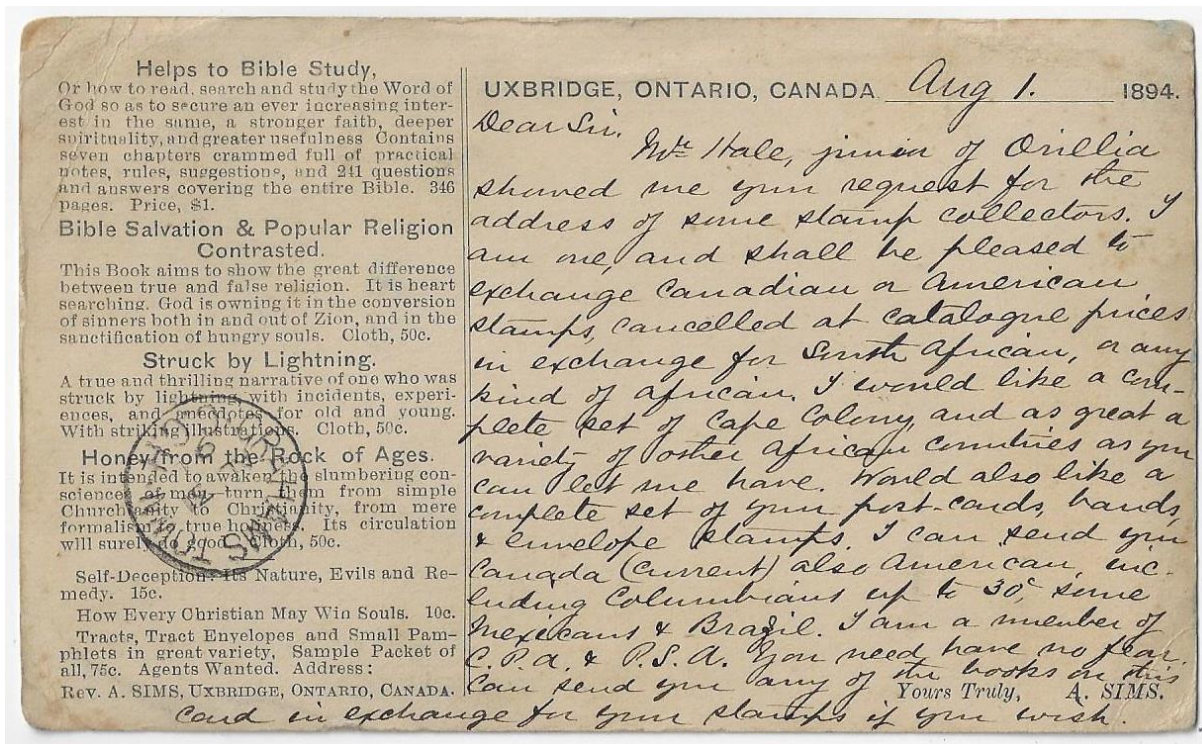 Helps to Bible Study,
Or how to read, search and study the Word of
God so as to secure an ever increasing inter-
est in the same, a stronger faith, deeper
spirituality, and greater usefulness Contains
seven chapters crammed full of practical
notes, rules, suggestions, and 241 questions
and answers covering the entire Bible. 346
pages. Price, $1.
Bible Salvation & Popular Religion
Contrasted.
This Book aims to show the great difference
between true and false religion. It is heart
searching. God is owning it in the conversion
of sinners both in and out of Zion, and in the
sanctification of hungry souls. Cloth, 50c.
Struck by Lightning.
A true and thrilling narrative of one who was
struck by lightning, with incidents, experi-
ences, and anecdotes for old and young.
With striking illustrations. Cloth, 50c.
Honey from the Rock of Ages.
It is intended to awaken the slumbering con-
sciences of men, turn them from simple
Churchanity to Christianity, from mere
formalism to true holiness. Its circulation
will surely do good. Cloth, 50c.
Self-Deception: Its Nature, Evils and Re-
medy. 15c.
How Every Christian May Win Souls. 10c.
Tracts, Tract Envelopes and Small Pam-
phlets in great variety, Sample Packet of
all, 75c. Agents Wanted. Address:
Rev. A. SIMS, UXBRIDGE, ONTARIO, CANADA.
UXBRIDGE, ONTARIO, CANADA Aug 1. 1894.
Dear Sir.
Mr Hale, junior of Orillia
showed me your request for the
address of some stamp collectors. I
am one, and shall be pleased to
exchange Canadian or American
stamps, cancelled at catalogue prices
in exchange for South African, or any
kind of African. I would like a com-
plete set of Cape Colony, and as great a
variety of other African countries as you
can let me have. Would also like a
complete set of your post-cards, bands,
& envelope stamps. I can send you
Canada (current) also American, inc-
luding Columbians up to 30c, some
Mexicans & Brazil. I am a member of
C.P.A. & P.S.A. You need have no fear.
Can send you any of the books on this
Yours Truly, A. SIMS.
card in exchange for your stamps if you wish.
GRAHAMSTOWN